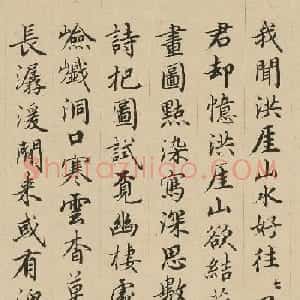 我聞洪崖山水好往
君却憶洪崖山欲結
畫圖點染寫深思數
詩把圖試覓幽棲處
嶮巇洞口寒雲杳草
長潺湲閒來或有
Shufaziliao.com